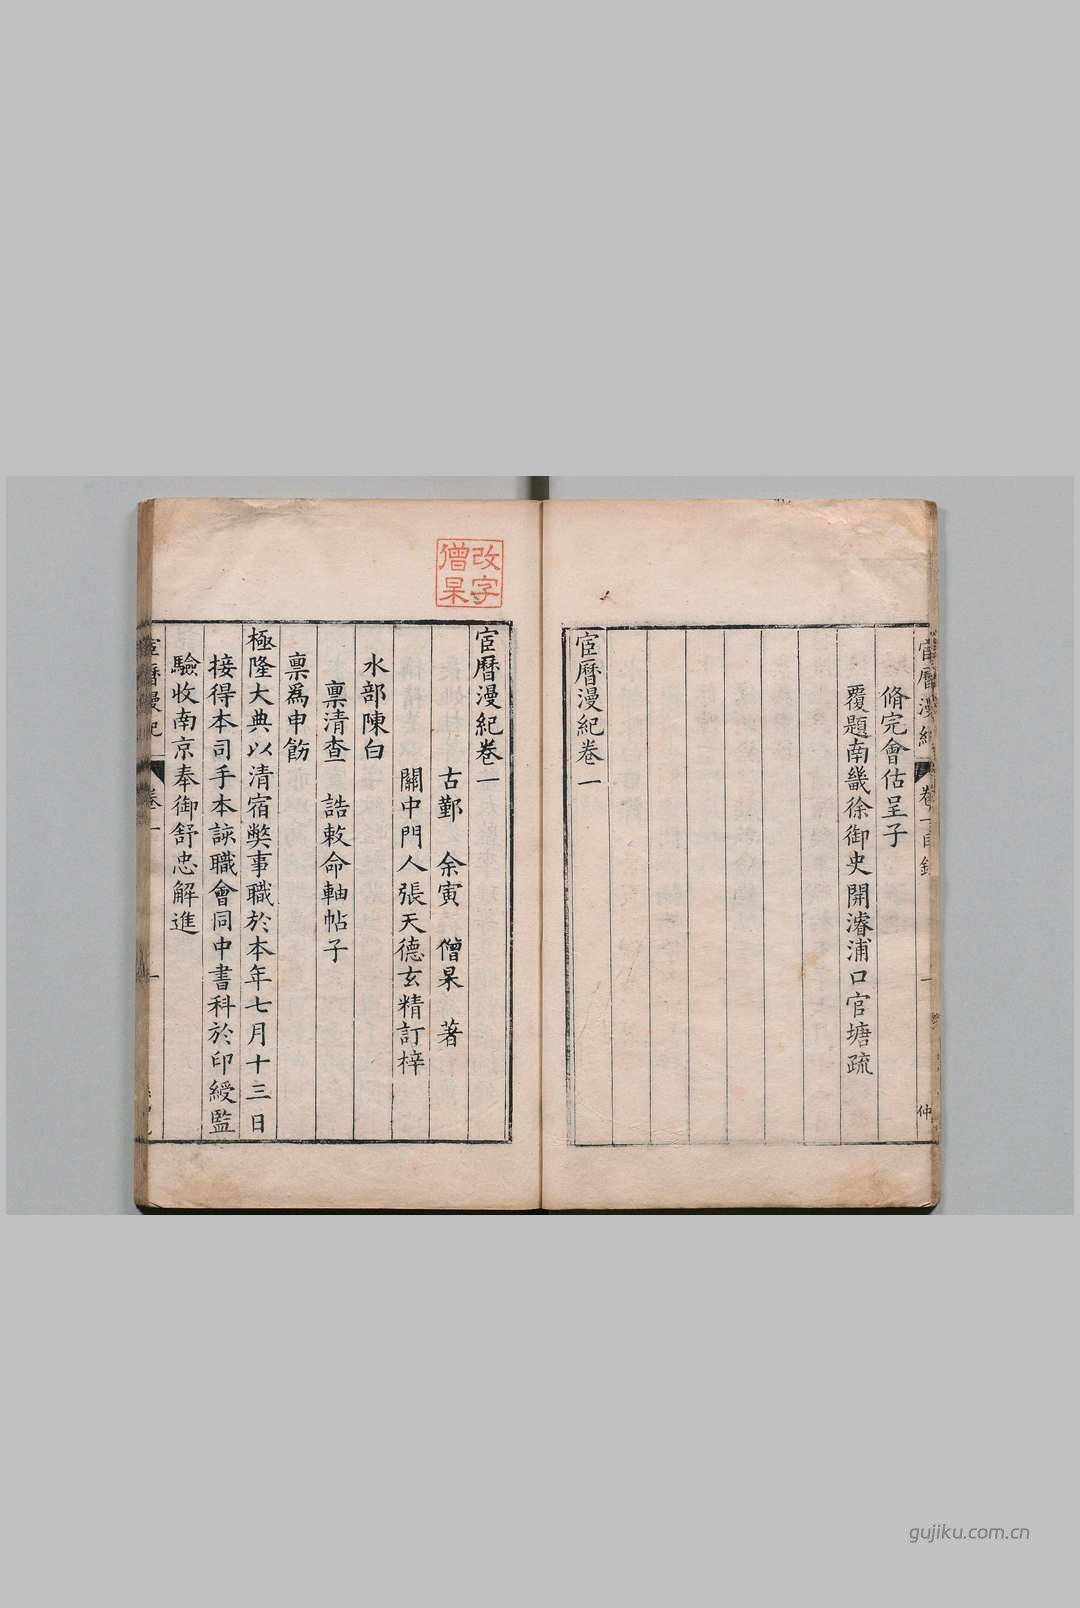 宦曆漫紀 卷一目錄 一 仲
脩完會估呈子
覆題南畿徐御史開濬浦口官塘疏
宦曆漫紀卷一
改字僧杲
宦曆漫紀卷一
古鄞 余寅 僧杲 著
關中門人張天德玄精訂梓
水部陳白
稟清查 誥敕命軸帖子
稟爲申飭
極隆大典以清宿弊事職於本年七月十三日
接得本司手本該職會同中書科於印綬監
驗收南京奉御舒忠解進
宦曆漫紀 卷一 一
gujiku.com.cn